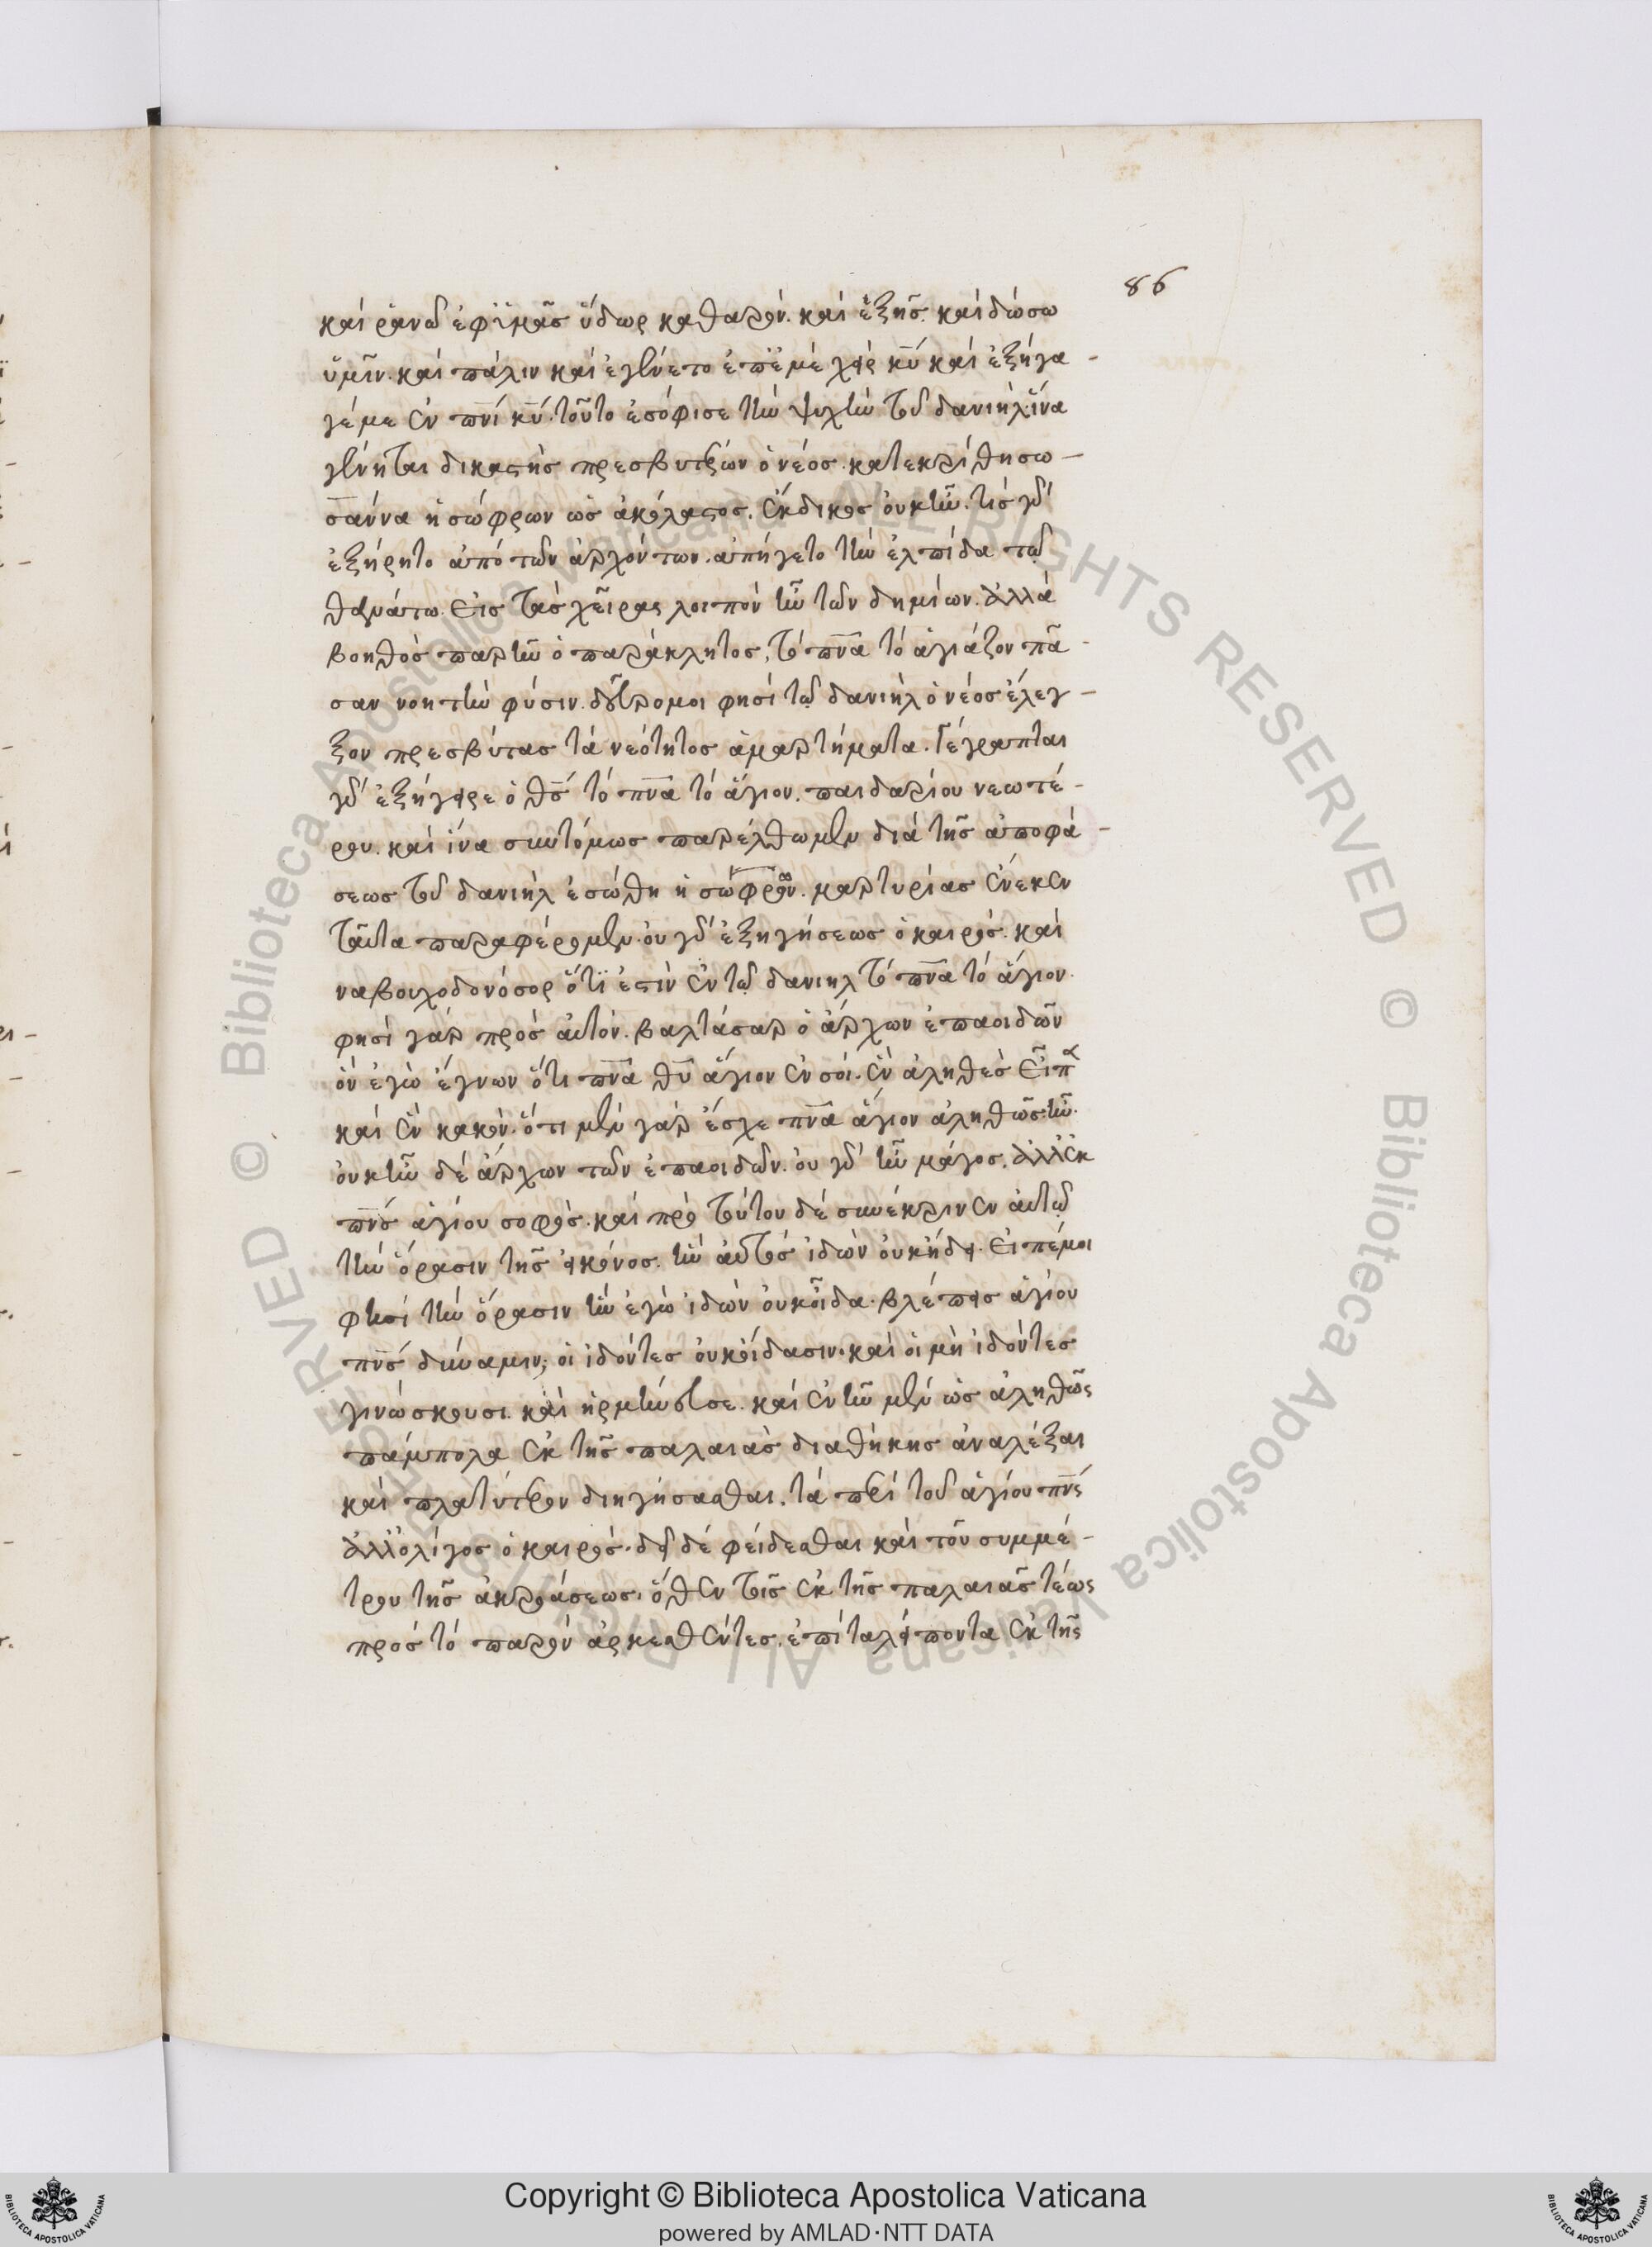 86
καὶ ῥανῶ ἐφ' ἡμᾶς ὕδωρ καθαρόν. καὶ ἑξῆς. καὶ δώσω
ὑμῖν. καὶ πάλιν καὶ ἐγένετο ἐπ' ἐμὲ χεὶρ κυ καὶ ἐξήγα-
γέ με ἐν πνι κυ. τοῦτο ἐσόφισε τὴν ψυχὴν τοῦ δανιὴλ ἵνα
γένηται δικαστὴς πρεσβυτέρων ὁ νέος. κατεκρίθη σω-
σάννα ἡ σώφρων ὡς ἀκόλαστος. ἔκδικος οὐκ ἦν. τίς γὰρ
ἐξῄρητο ἀπὸ τῶν ἀρχόντων. ἀπήγετο τὴν ἐλπίδα τῷ
θανάτω. εἰς τὰς χεῖρας λοιπὸν ἦν τῶν δημίων. ἀλλὰ
βοηθὸς παρῆν ὁ παράκλητος, τὸ πνα τὸ ἁγιάζον πᾶ-
σαν νοητὴν φύσιν. δεῦρό μοι φησὶ τῷ δανιὴλ ὁ νέος ἔλεγ-
ξον πρεσβύτας τὰ νεότητος ἁμαρτήματα. Γέγραπται
γὰρ ἐξήγειρε ὁ θς τὸ πνα τὸ ἅγιον. παιδαρίου νεωτέ-
ρου. καὶ ἵνα συντόμως παρέλθωμεν διὰ τῆς ἀποφά-
σεως τοῦ δανιὴλ ἐσώθη ἡ σώφρων. μαρτυρίας ἕνεκεν
ταῦτα παραφέρομεν. οὐ γὰρ ἐξηγήσεως ὁ καιρός. καὶ
ναβουχοδονόσορ ὅτι ἐστὶν ἐν τῷ δανιηλ τὸ πνα τὸ ἅγιον.
φησὶ γὰρ πρὸς αὐτόν. βαλτάσαρ ὁ ἄρχων ἐπαοιδῶν
ὃν ἐγὼ ἔγνων ὅτι πνα θυ ἅγιον ἐν σοί. ἓν ἀληθὲς εἶπα
καὶ ἓν κακόν. ὅτι μὲν γὰρ ἔσχε πνα ἅγιον ἀληθῶς ἦν.
οὐκ ἦν δὲ ἄρχων τῶν ἐπαοιδῶν. οὐ γὰρ ἦν μάγος. ἀλλ' ἐκ
πνς ἁγίου σοφός. καὶ πρὸ τούτου δὲ συνέκρινεν αὐτῷ
τὴν ὅρασιν τῆς εἰκόνος. ἣν αὐτὸς ἰδὼν οὐκ ᾔδει. Εἰπέ μοι
φησὶ τὴν ὅρασιν ἣν ἐγὼ ἰδὼν οὐκ οἶδα. βλέπεις ἁγίου
πνς δύναμιν; οἱ ἰδόντες οὐκ οἴδασιν. καὶ οἱ μὴ ἰδόντες
γινώσκουσι. καὶ ἡρμήνευσε. καὶ ἐνῆν μὲν ὡς ἀληθῶς
πάμπολα ἐκ τῆς παλαιᾶς διαθήκης ἀναλέξαι
καὶ πλατύτερον διηγήσασθαι. τὰ περὶ τοῦ ἁγίου πνς
ἀλλ' ὀλίγος ὁ καιρός. δεῖ δὲ φείδεσθαι καὶ τοῦ συμμέ-
τρου τῆς ἀκροάσεως. ὅθεν τοῖς ἐκ τῆς παλαιᾶς τέως
πρὸς τὸ παρὸν ἀρκεσθέντες. ἐπὶ τὰ λείποντα ἐκ τῆς
Copyright © Biblioteca Apostolica Vaticana
powered by AMLAD·NTT DATA